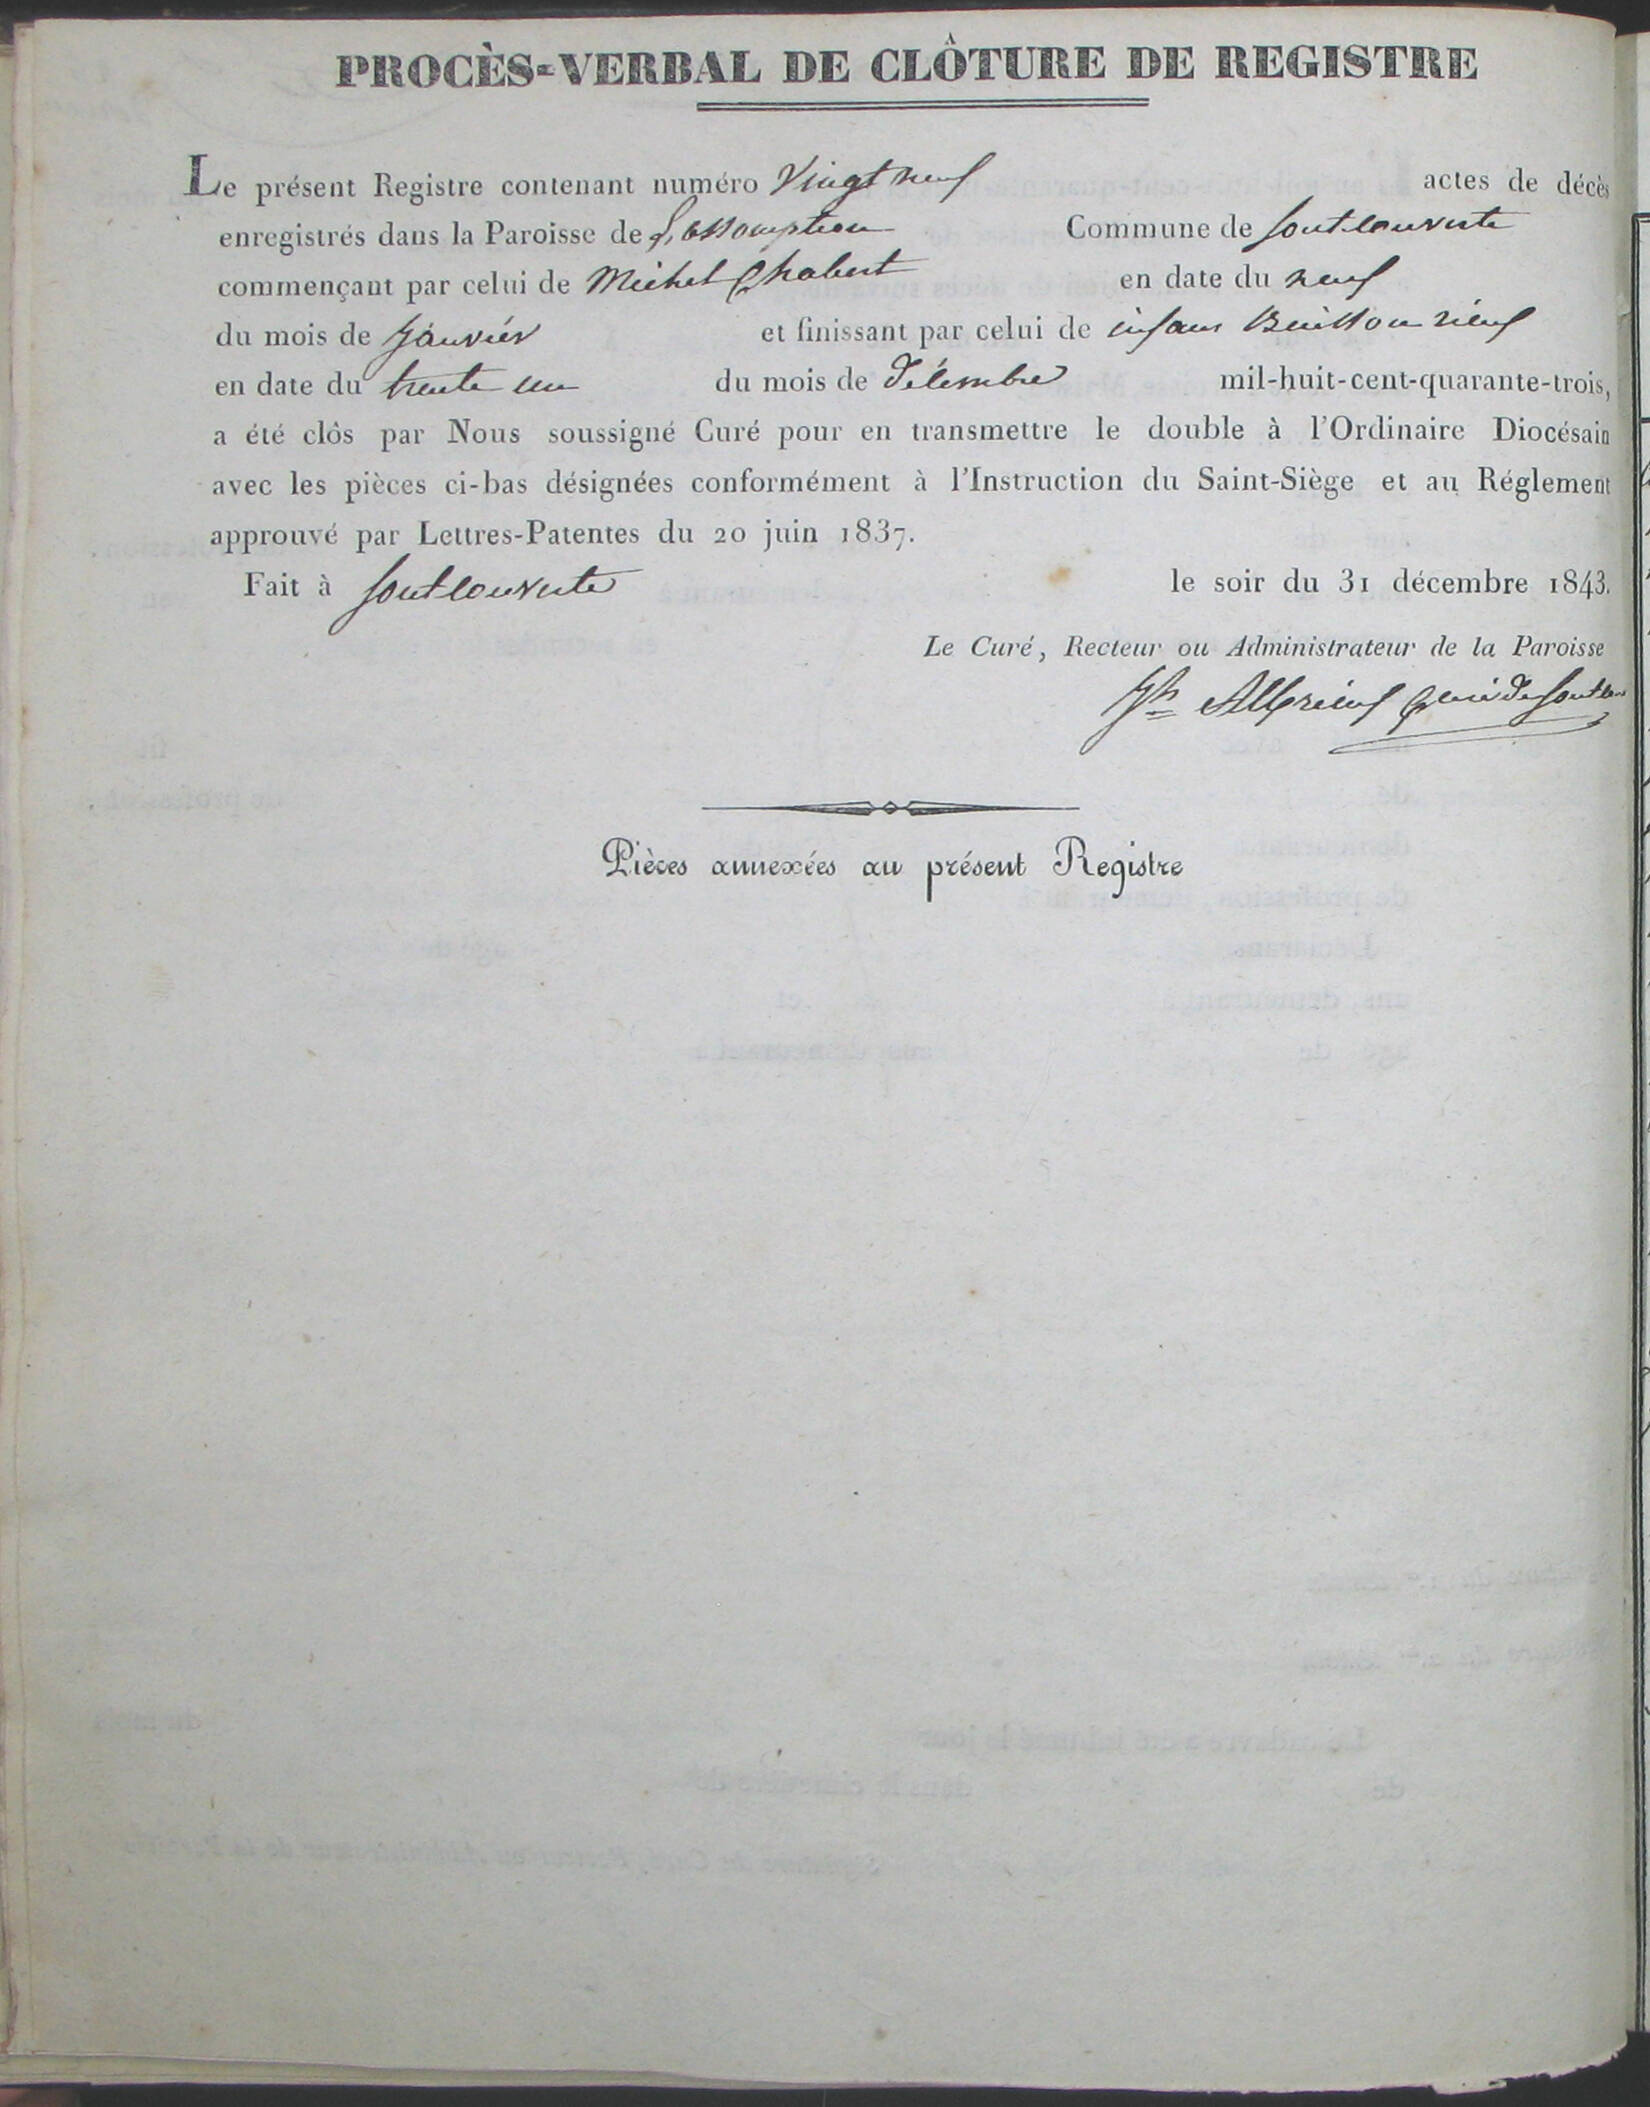 PROCÈS-VERBAL DE CLÔTURE DE REGISTRE
Le présent Registre contenant numéro Vingt neuf actes de décès
enregistrés dans la Paroisse de L'assomption Commune de fontcouverte
commençant par celui de Michel Chabert en date du neuf
du mois de Janvier et finissant par celui de Buisson
en date du trente un du mois de Décembre mil-huit-cent-quarante-trois,
a été clôs par Nous soussigné Curé pour en transmettre le double à l'Ordinaire Diocésain
avec les pièces ci-bas désignées conformément à l'Instruction du Saint-Siège et au Réglement
approuvé par Lettres-Patentes du 20 juin 1837.
Fait à fontcouverte le soir du 31 décembre 1843.
Le Curé, Recteur ou Administrateur de la Paroisse
Jh Albrieux Curé de
Pièces annexées au présent Registre